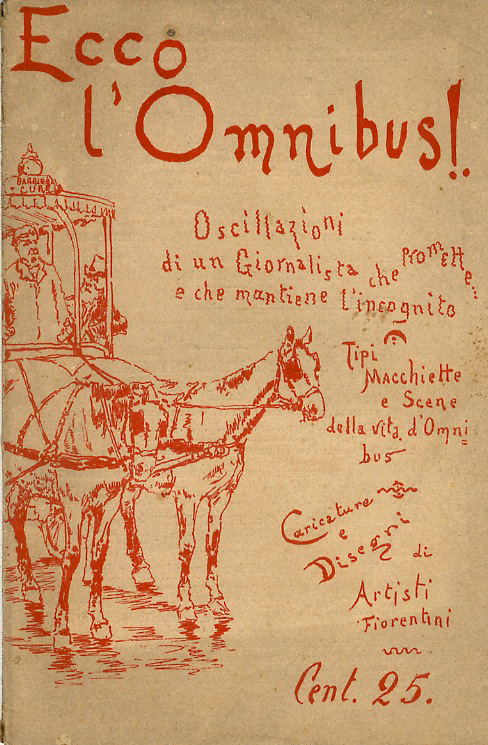 Ecco
l'Omnibus!
BARRIERA
CURE
Oscillazioni
di un Giornalista che promette..
e che mantiene l'incognito
Tipi
Macchiette
e Scene
della vita d'Omni=
bus
Caricature
e
Disegni
di
Artisti
Fiorentini
Cent. 25.